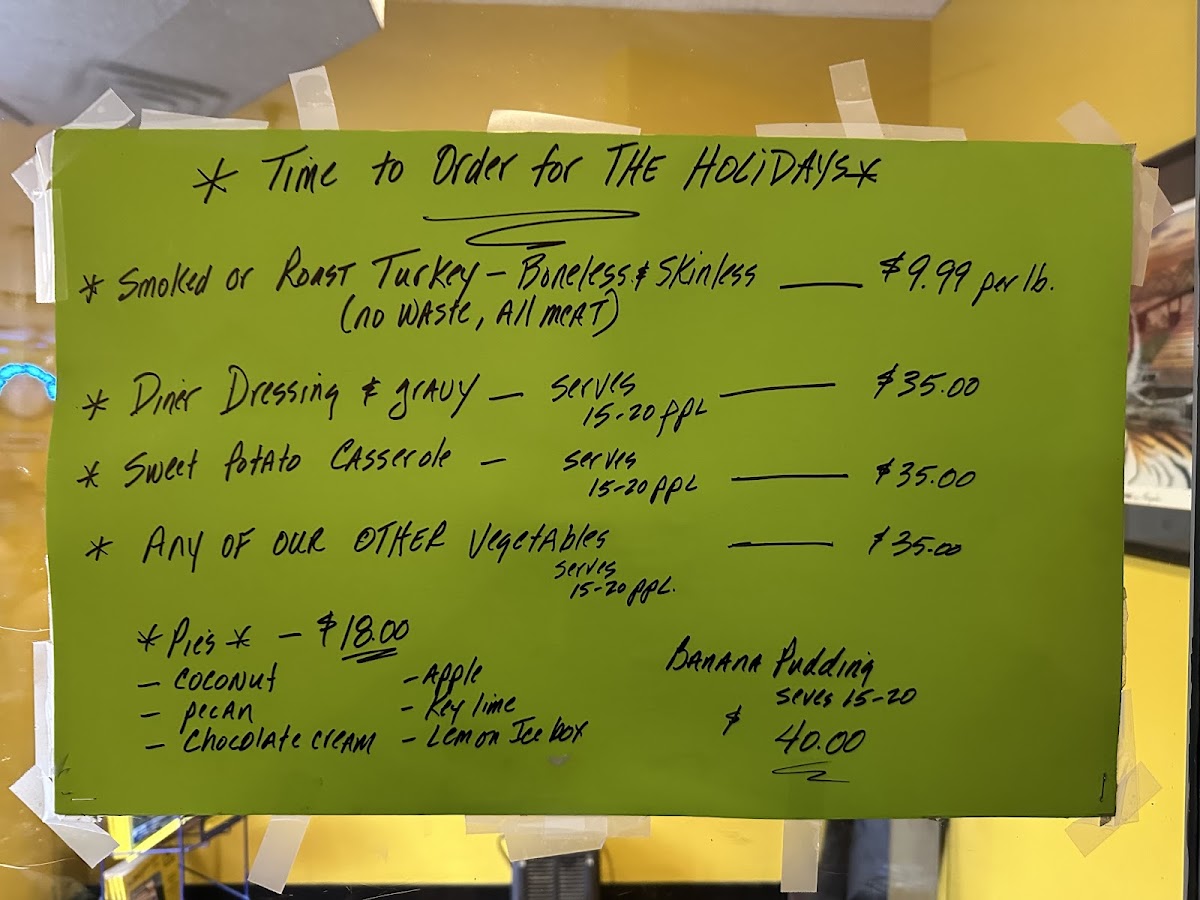 * Time to Order for THE HOLIDAYS *
* Smoked or Roast Turkey - Boneless & Skinless — $9.99 per lb.
(no waste, All meat)
* Diner Dressing & gravy - serves 15-20 ppl — $35.00
* Sweet Potato Casserole - serves 15-20 ppl — $35.00
* Any of our OTHER Vegetables — $35.00
serves 15-20 ppl.
* Pie's * - $18.00
- Coconut
- Pecan
- Chocolate cream
- Apple
- Key lime
- Lemon Ice box
Banana Pudding
seves 15-20
$ 40.00